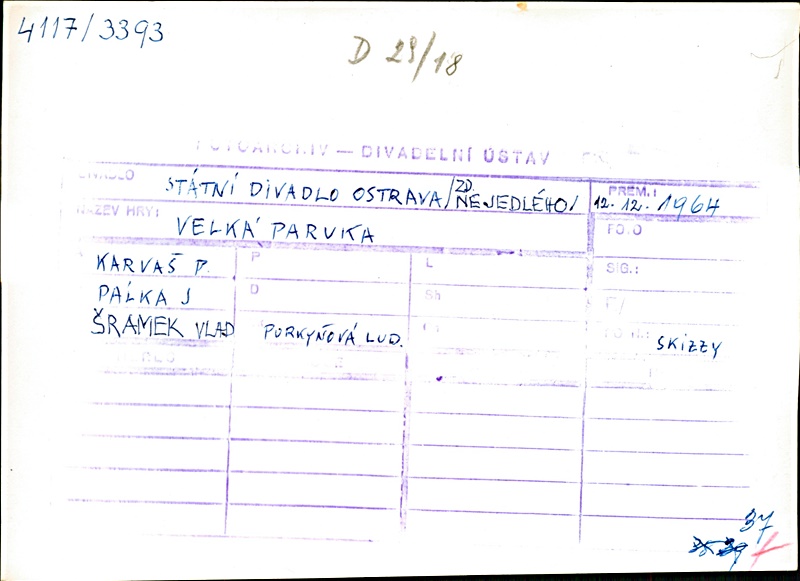 4117/3393
D 29/18
FOTOARCHIV — DIVADELNÍ ÚSTAV
DIVADLO STÁTNÍ DIVADLO OSTRAVA /ZD. NEJEDLÉHO/ PREM.: 12. 12. 1964
NÁZEV HRY: VELKÁ PARUKA FOTO
KARVAŠ P. P L SIG.:
PÁLKA J D Sh F/
ŠRAMEK VLAD PURKYŇOVÁ LUD. SKIZZY
37